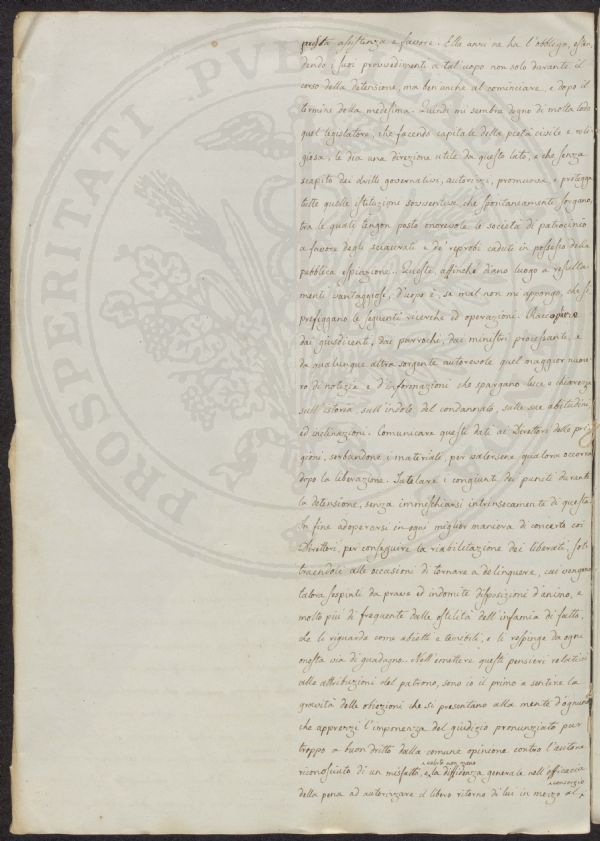 presta assistenza e favore. Ella anzi ne ha l'obbligo, esten-
dendo i suoi provvedimenti a tal uopo non solo durante il
corso della detensione, ma ben anche al cominciare, e dopo il
termine della medesima. Quindi mi sembra degno di molta lode
quel legislatore, che facendo capitale della pietà civile e reli-
giosa, le dia una direzione utile da questo lato, e che senza
scapito dei diritti governativi, autorizzi, promuova, e protegga
tutte quelle istituzione sovventive, che spontaneamente sorgano,
tra le quali tengon posto onorevole le società di patrocinio
a favore degli sciaurati e de' reprobi caduti in possesso della
pubblica espiazione. Queste, affinché diano luogo a risulta-
menti vantaggiosi, d'uopo è, se mal non mi appongo, che si
prefiggano le seguenti ricerche ed operazioni. Raccogliere
dai giusdicenti, dai parrochi, dai ministri processanti, e
da qualunque altra sorgente autorevole quel maggior nume-
ro di notizie e d'informazioni che spargano luce e chiarezza
sull'istoria, sull'indole del condannato, sulle sue abitudini,
ed inclinazioni. Comunicare questi dati ai Direttori delle pri-
gioni, serbandone i materiali, per valersene qualora occorra
dopo la liberazione. Tutelare i congiunti dei puniti durante
la detensione, senza immischiarsi intrinsecamente di questa.
In fine adoperarsi in ogni miglior maniera di concerto coi
Direttori, per conseguire la riabilitazione dei liberati, sot-
traendoli alle occasioni di tornare a delinquere, cui vengono
talora sospinti da prave ed indomite disposizioni d'animo, e
molto più di frequente dalle ostilità dell'infamia di fatto,
che li riguarda come abietti e temibili, e li respinge da ogni
onesta via di guadagno. Nell'emettere questi pensieri relativi
alle attribuzioni del patrono, sono io il primo a sentire la
gravità delle obiezioni che si presentano alla mente d'ognuno
che apprezzi l'imponenza del giudizio pronunziato pur
troppo a buon dritto dalla comune opinione contro l'autore
riconosciuto di un misfatto, e la diffidenza generale nell'efficacia
della pena ad autorizzare il libero ritorno di lui in mezzo al
consorzio
PROSPERITATI PUBLICAE